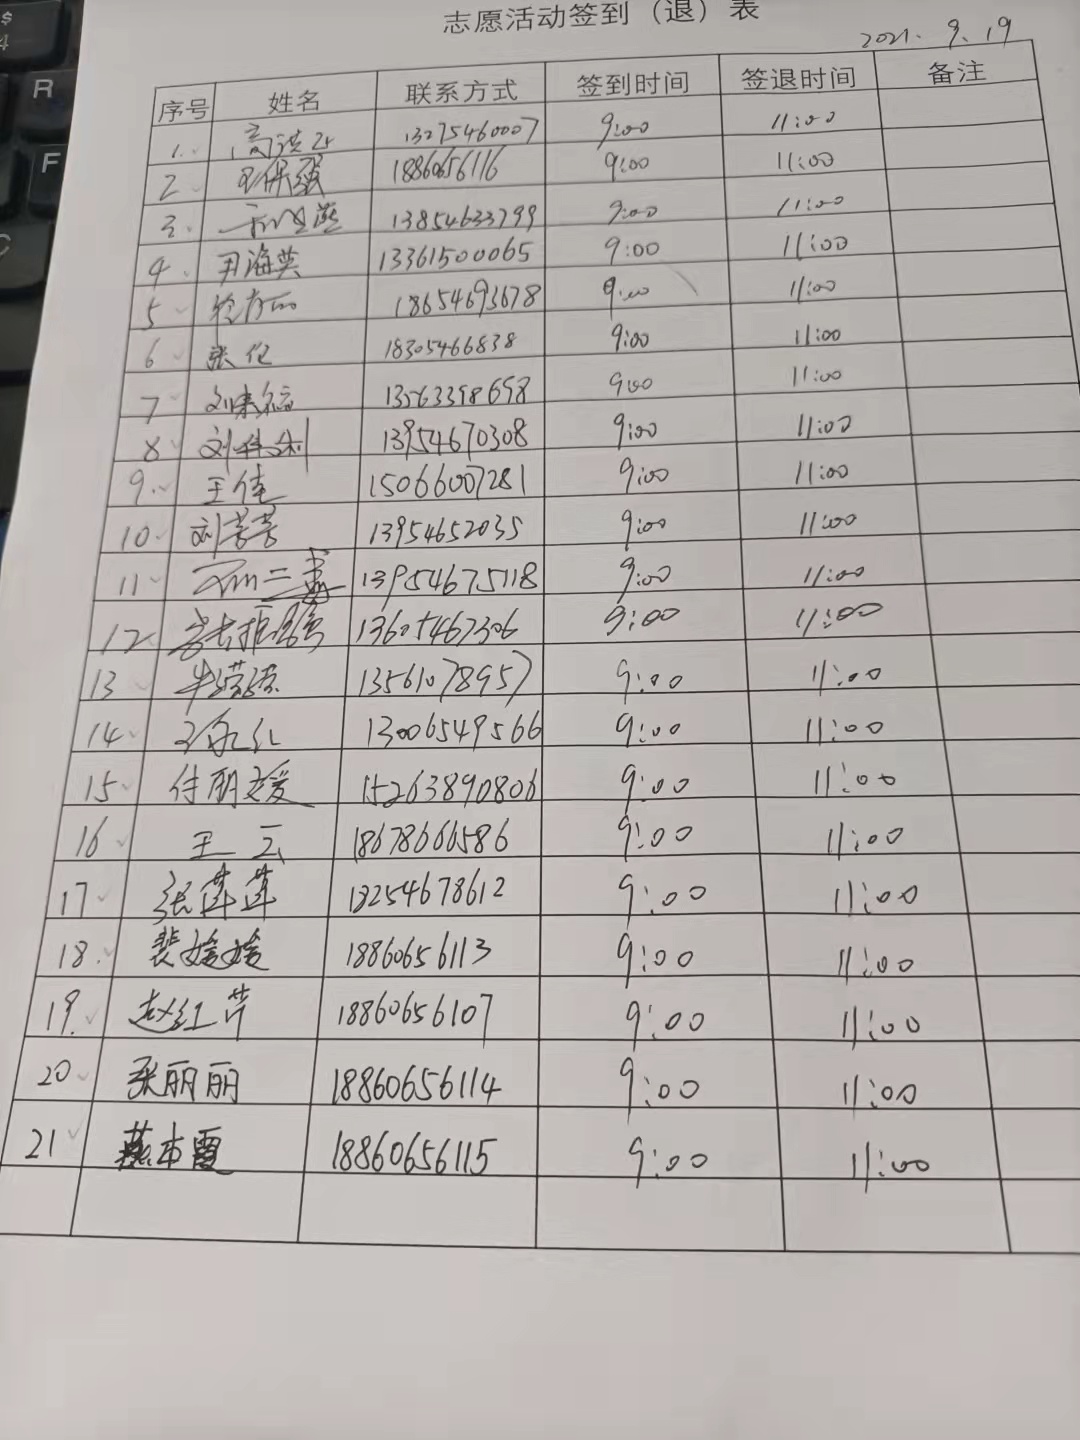 志愿活动签到（退）表
2021. 9. 19
序号 姓名 联系方式 签到时间 签退时间 备注
1. 13075460007 9:00 11:00
2 18860656116 9:00 11:00
3. 13854633799 9:00 11:00
4 尹海英 13361500065 9:00 11:00
5 18654693678 9:00 11:00
6 张伦 18305466838 9:00 11:00
7 13563398698 9:00 11:00
8 13954670308 9:00 11:00
9. 王倩 15066007281 9:00 11:00
10 刘芳芳 13954652035 9:00 11:00
11 13954675118 9:00 11:00
12 13605467306 9:00 11:00
13 13561078957 9:00 11:00
14 13006549566 9:00 11:00
15 付朋媛 15263890806 9:00 11:00
16 王云 18678666586 9:00 11:00
17 张莲莲 18254678612 9:00 11:00
18. 裴媛媛 18860656113 9:00 11:00
19. 赵红芹 18860656107 9:00 11:00
20 张丽丽 18860656114 9:00 11:00
21 燕本霞 18860656115 9:00 11:00
R
F
$
4
C